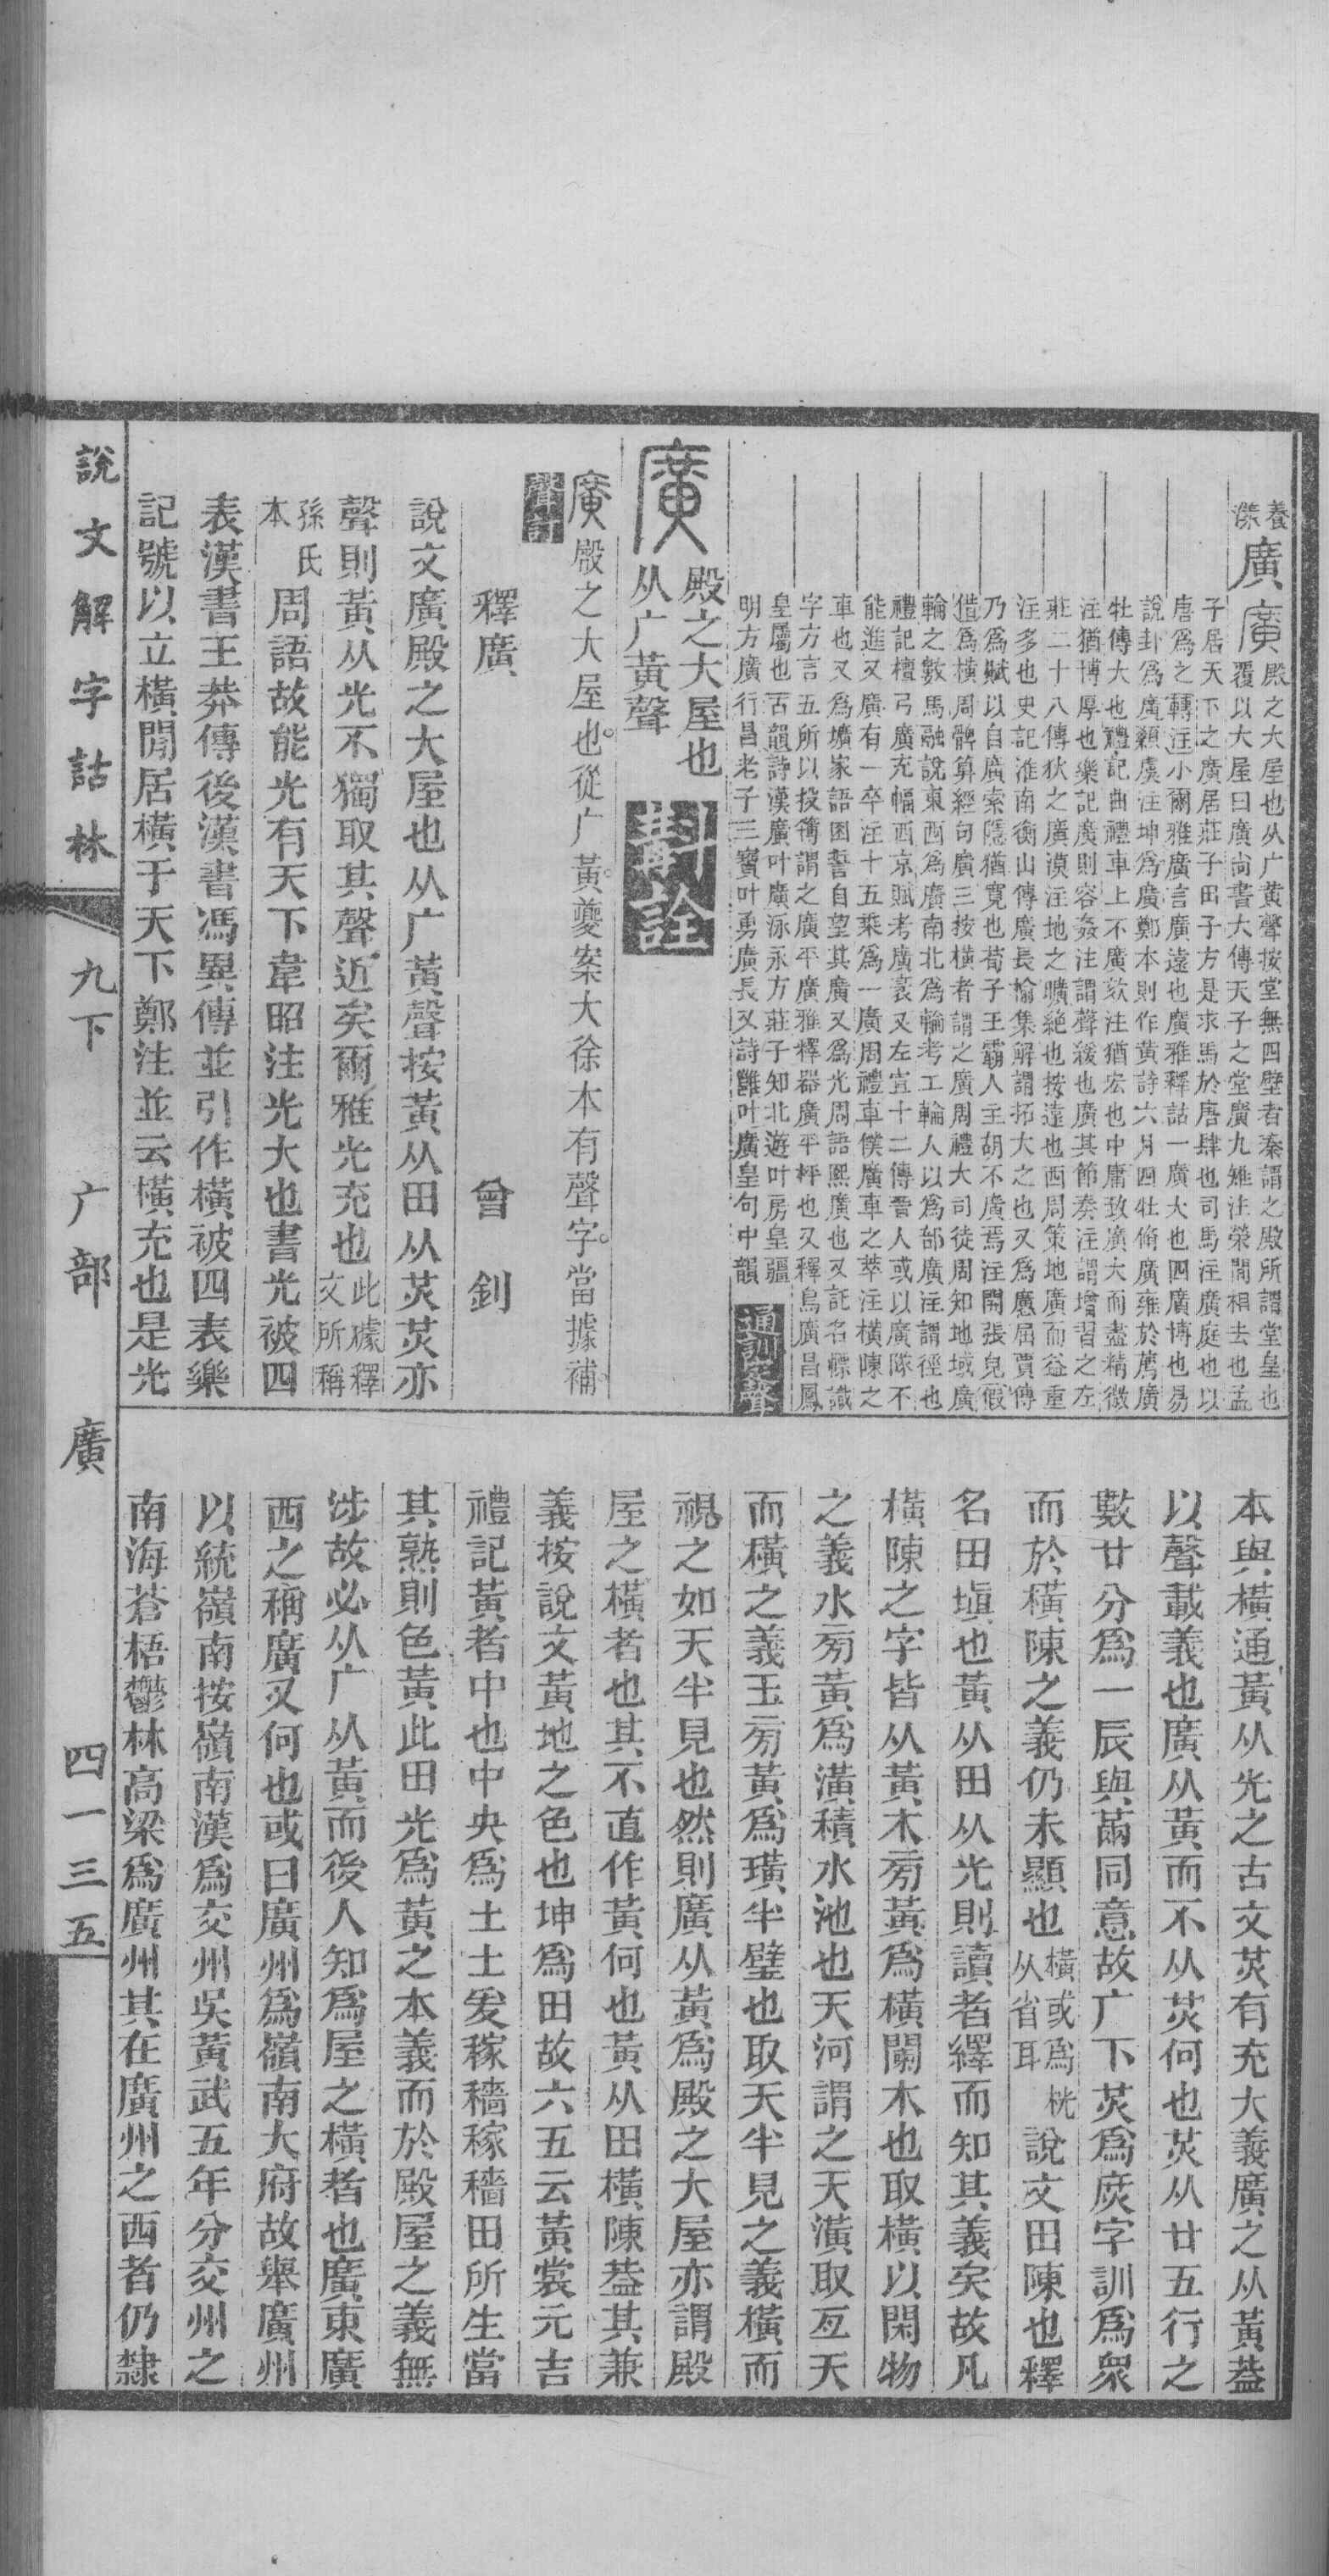 養
傑
廣
廣殿之大屋也从广黃聲按堂無四壁者秦謂之殿所謂堂皇也
覆以大屋曰廣尚書大傳天子之堂廣九雉注榮閒相去也孟
子居天下之廣居莊子田子方是求馬於唐肆也司馬注廣庭也以
唐爲之轉注小爾雅廣言廣遠也廣雅釋詁一廣大也四廣博也易
說卦爲廣顙虞注坤爲廣鄭本則作黃詩六月四牡脩廣雍於薦廣
牡傳大也禮記曲禮車上不廣欬注猶宏也中庸致廣大而盡精微
注猶博厚也樂記廣則容姦注謂聲緩也廣其節奏注謂增習之左
莊二十八傳狄之廣漠注地之曠絕也按遠也西周策地廣而益重
注多也史記淮南衡山傳廣長榆集解謂拓大之也又爲應屈賈傳
乃爲賦以自廣索隱猶寬也荀子王霸人主胡不廣焉注開張皃假
借爲橫周髀算經句廣三按橫者謂之廣周禮大司徒周知地域廣
輪之數馬融說東西爲廣南北爲輪考工輪人以爲部廣注謂徑也
禮記檀弓廣充幅西京賦考廣袤又左宣十二傳晉人或以廣隊不
能進又廣有一卒注十五乘爲一廣周禮車僕廣車之萃注橫陳之
車也又爲壙家語困誓自望其廣又爲光周語熙廣也又託名幖識
字方言五所以投簙謂之廣平廣雅釋器廣平枰也又釋鳥廣昌鳳
皇屬也古韻詩漢廣叶廣泳永方莊子知北遊叶房皇疆
明方廣行昌老子三寶叶勇廣長又詩雝叶廣皇句中韻
通訓定聲
廣
殿之大屋也
从广黃聲
詮
廣殿之大屋也從广黃夔案大徐本有聲字當據補
釋廣　曾釗
說文廣殿之大屋也从广黃聲按黃从田从炗炗亦
聲則黃从光不獨取其聲近矣爾雅光充也此據釋文所稱
孫氏本周語故能光有天下韋昭注光大也書光被四
表漢書王莽傳後漢書馮異傳並引作橫被四表樂
記號以立橫閒居橫于天下鄭注並云橫充也是光
本與橫通黃从光之古文炗有充大義廣之从黃葢
以聲載義也廣从黃而不从炗何也炗从廿五行之
數廿分爲一辰與㒼同意故广下炗爲庶字訓爲衆
而於橫陳之義仍未顯也橫或爲桄从省耳說文田陳也釋
名田塡也黃从田从光則讀者繹而知其義矣故凡
橫陳之字皆从黃木旁黃爲橫闌木也取橫以閑物
之義水旁黃爲潢積水池也天河謂之天潢取亙天
而橫之義玉旁黃爲璜半璧也取天半見之義橫而
視之如天半見也然則廣从黃爲殿之大屋亦謂殿
屋之橫者也其不直作黃何也黃从田橫陳葢其兼
義按說文黃地之色也坤爲田故六五云黃裳元吉
禮記黃者中也中央爲土土爰稼穡稼穡田所生當
其熟則色黃此田光爲黃之本義而於殿屋之義無
涉故必从广从黃而後人知爲屋之橫者也廣東廣
西之稱廣又何也或曰廣州爲嶺南大府故舉廣州
以統嶺南按嶺南漢爲交州吳黃武五年分交州之
南海蒼梧鬱林高梁爲廣州其在廣州之西者仍隸
說文解字詁林　九下　广部　廣　四一三五